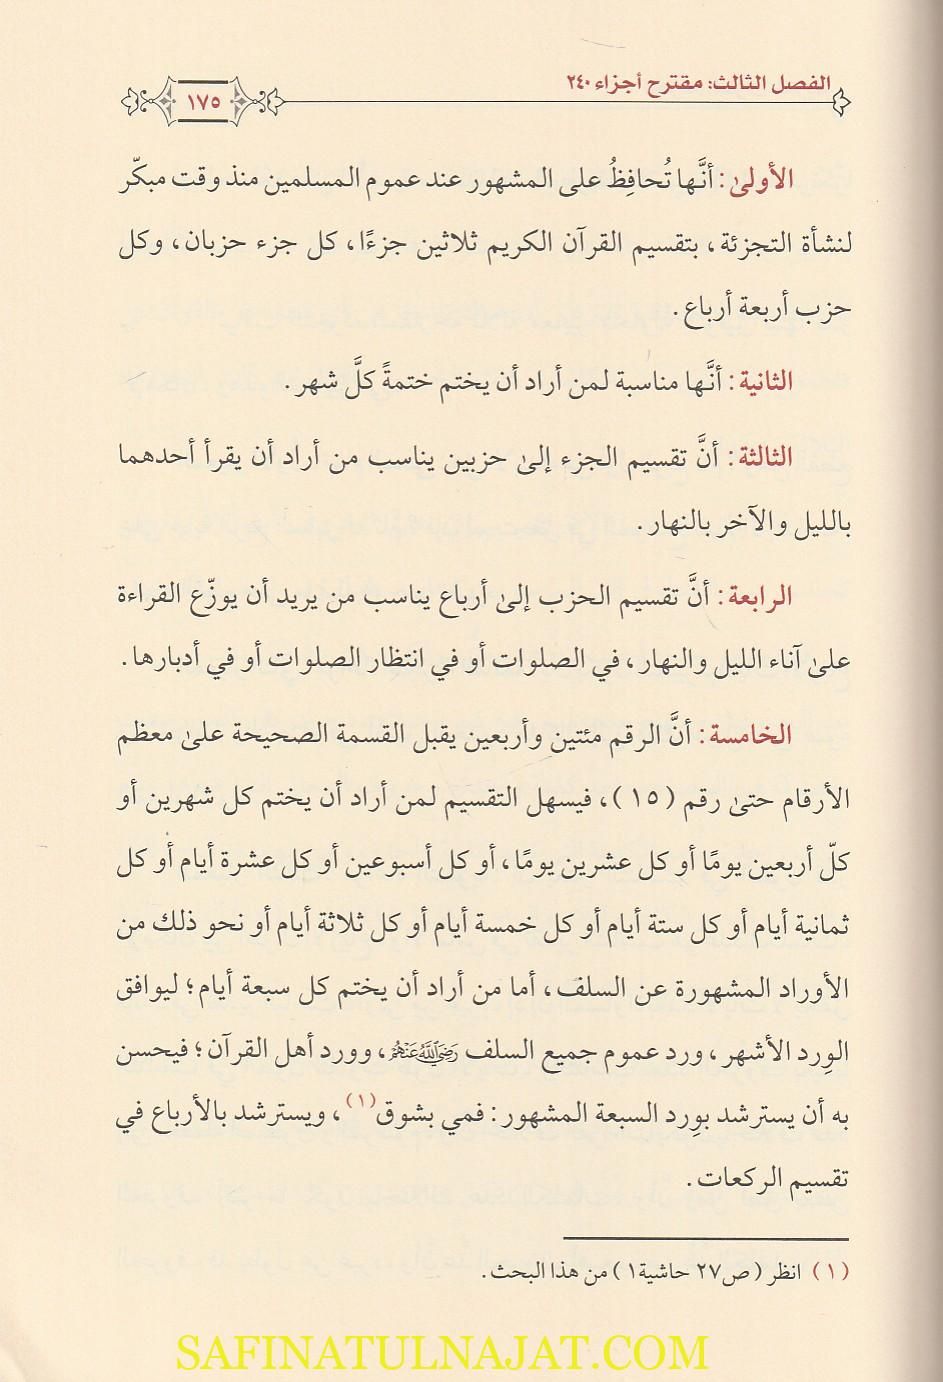 الفصل الثالث: مقترح أجزاء ٢٤٠
١٧٥
الأولىٰ: أنَّها تُحافِظُ على المشهور عند عموم المسلمين منذ وقت مبكّر
لنشأة التجزئة، بتقسيم القرآن الكريم ثلاثين جزءًا، كل جزء حزبان، وكل
حزب أربعة أرباع.
الثانية: أنَّها مناسبة لمن أراد أن يختم ختمةً كلَّ شهر.
الثالثة: أنَّ تقسيم الجزء إلىٰ حزبين يناسب من أراد أن يقرأ أحدهما
بالليل والآخر بالنهار.
الرابعة: أنَّ تقسيم الحزب إلىٰ أرباع يناسب من يريد أن يوزّع القراءة
علىٰ آناء الليل والنهار، في الصلوات أو في انتظار الصلوات أو في أدبارها.
الخامسة: أنَّ الرقم مئتين وأربعين يقبل القسمة الصحيحة علىٰ معظم
الأرقام حتىٰ رقم (١٥)، فيسهل التقسيم لمن أراد أن يختم كل شهرين أو
كلّ أربعين يومًا أو كل عشرين يومًا، أو كل أسبوعين أو كل عشرة أيام أو كل
ثمانية أيام أو كل ستة أيام أو كل خمسة أيام أو كل ثلاثة أيام أو نحو ذلك من
الأوراد المشهورة عن السلف، أما من أراد أن يختم كل سبعة أيام؛ ليوافق
الوِرد الأشهر، ورد عموم جميع السلف رَضِيَ اللَّهُ عَنْهُمْ، وورد أهل القرآن؛ فيحسن
به أن يسترشد بوِرد السبعة المشهور: فمي بشوق(١)، ويسترشد بالأرباع في
تقسيم الركعات.
(١) انظر (ص٢٧ حاشية١) من هذا البحث.
SAFINATULNAJAT.COM